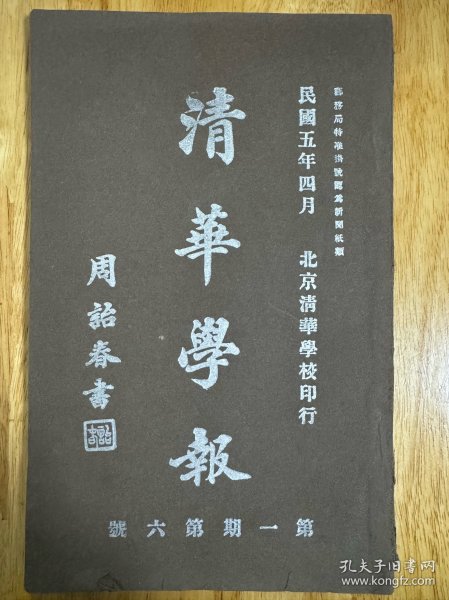 郵務局特准掛號認為新聞紙類
民國五年四月 北京清華學校印行
清華學報
周詒春書
第一期第六號
孔夫子旧书网
www.kongfz.com